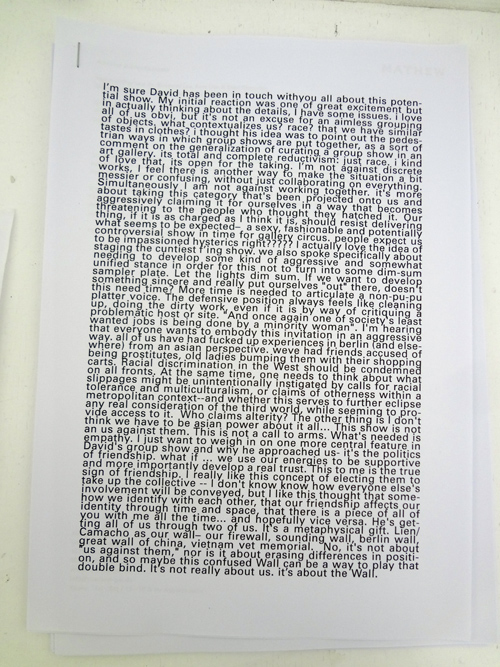 I'm sure David has been in touch withyou all about this poten-
tial show. My initial reaction was one of great excitement but
in actually thinking about the details, I have some issues. I love
all of us obvi, but it's not an excuse for an aimless grouping
of objects, what contextualizes us? race? that we have similar
tastes in clothes? i thought his idea was to point out the pedes-
trian ways in which group shows are put together, as a sort of
comment on the generalization of curating a group show in an
art gallery. its total and complete reductivism: just race, i kind
of love that, its open for the taking. I'm not against discrete
works, I feel there is another way to make the situation a bit
messier or confusing, without just collaborating on everything.
Simultaneously I am not against working together. it's more
about taking this category that's been projected onto us and
aggressively claiming it for ourselves in a way that becomes
threatening to the people who thought they hatched it. Our
thing, if it is as charged as I think it is, should resist delivering
what seems to be expected– a sexy, fashionable and potentially
controversial show in time for gallery circus. people expect us
to be impassioned hysterics right????? I actually love the idea of
staging the cuntiest f'ing show. we also spoke specifically about
needing to develop some kind of aggressive and somewhat
unified stance in order for this not to turn into some dim-sum
sampler plate. Let the lights dim sum. If we want to develop
something sincere and really put ourselves "out" there, doesn't
this need time? More time is needed to articulate a non-pu-pu
platter voice. The defensive position always feels like cleaning
up, doing the dirty work, even if it is by way of critiquing a
problematic host or site. "And once again one of society's least
wanted jobs is being done by a minority woman". I'm hearing
that everyone wants to embody this invitation in an aggressive
way. all of us have had fucked up experiences in berlin (and else-
where) from an asian perspective. weve had friends accused of
being prostitutes, old ladies bumping them with their shopping
carts. Racial discrimination in the West should be condemned
on all fronts. At the same time, one needs to think about what
slippages might be unintentionally instigated by calls for racial
tolerance and multiculturalism, or claims of otherness within a
metropolitan context--and whether this serves to further eclipse
any real consideration of the third world, while seeming to pro-
vide access to it. Who claims alterity? The other thing is I don't
think we have to be asian power about it all... This show is not
an us against them. This is not a call to arms. What's needed is
empathy. I just want to weigh in on one more central feature in
David's group show and why he approached us- it's the politics
of friendship. what if ... we use our energies to be supportive
and more importantly develop a real trust. This to me is the true
sign of friendship. I really like this concept of electing them to
take up the collective -- I don't know know how everyone else's
involvement will be conveyed, but I like this thought that some-
how we identify with each other, that our friendship affects our
identity through time and space, that there is a piece of all of
you with me all the time... and hopefully vice versa. He's get-
ting all of us through two of us. It's a metaphysical gift. Lien/
Camacho as our wall– our firewall, sounding wall, berlin wall,
great wall of china, vietnam vet memorial. "No, it's not about
"us against them," nor is it about erasing differences in positi-
on, and so maybe this confused Wall can be a way to play that
double bind. It's not really about us. it's about the Wall.